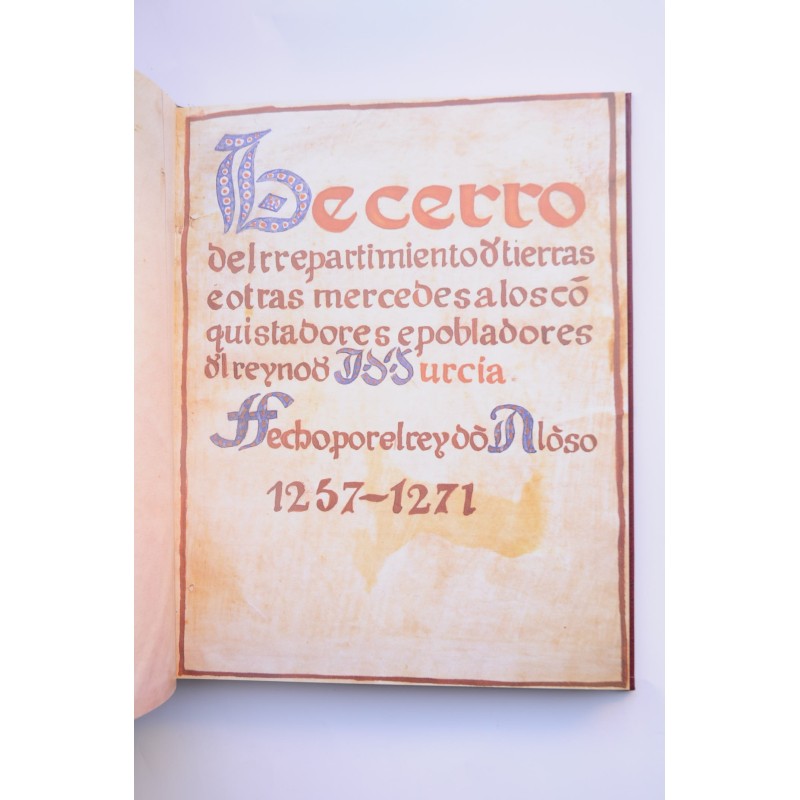 Becerro
delrrepartimientođtierras
eotras mercedesaloscō
quistadores epobladores
đlreynođ Murcía.
Fechoporelreydō Alōso
1257-1271